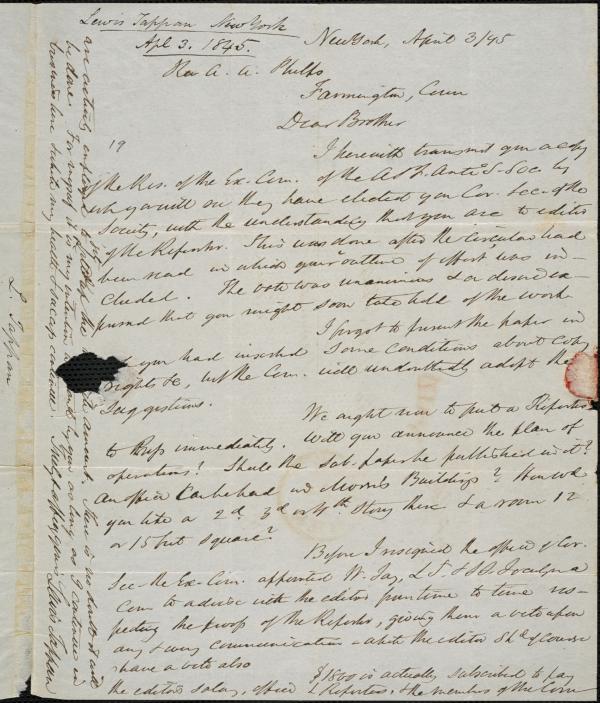 Lewis Tappan New York
Apl 3. 1845.
New York, April 3/45
Rev A. A. Phelps
Farmington, Conn
Dear Brother
19
I herewith transmit you a copy
of the Res. of the Ex. Com. of the A & F. Anti S. Soc. by
wh you will see they have elected you Cor. Sec. of the
Society, with the understanding that you are to edit
of the Reporter. This was done after the circular had
been read in which your outline of effort was in-
cluded. The vote was unanimous & a desire ex-
pressed that you might soon take hold of the work
I forgot to present the paper in
you had inserted some conditions about copy
rights &c, but the Com. will undoubtedly adopt the
suggestions.
We ought now to put a Reporter
to Press immediately. Will you announce the plan of
operations? Shall the Sab. paper be published in it?
An office can be had in Morris Buildings? How wd
you like a 2d. 3d or 4th Story there & a room 12
or 15 feet square?
Before I resigned the office of Cor.
Sec. the Ex. Com. appointed W. Jay, L T. & S. Jocelyn a
Com to advise with the editor from time to time res-
pecting the proofs of the Reporter, giving them a veto upon
any & every communication – while the editor shd of course
have a veto also
$1800 is actually subscribed to pay
the editor's salary, office & Reporters, & the members of the Com
an actively employed
be done. For myself it is my intention to
by you as long as I continue in
business here while my health & continue.
There is no doubt it will
Lewis Tappan
L. Tappan